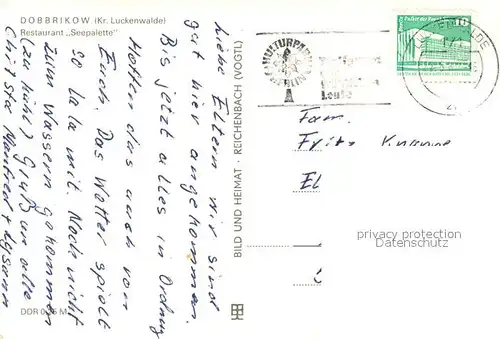 DOBBRIKOW (Kr. Luckenwalde)
Restaurant „Seepalette"
Liebe Eltern wir sind
gut hier angekommen.
Bis jetzt alles in Ordnung
Hoffen das auch von
Euch. Das Wetter spielt
so la la mit. Noch nicht
zum Wassern gekommen
(zu kühl) Gruß an alle
Christia Manfred +
DDR 0,25 M
BILD UND HEIMAT · REICHENBACH (VOGTL)
KULTURPARK
BERLIN
10
Fam.
Fritz
El
privacy protection
Datenschutz